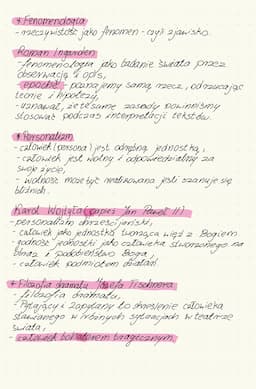 * Fenomenologia
- rzeczywistość jako fenomen - czyli zjawisko.
Roman Ingarden
- fenomenologia jako badanie świata przez
obserwację i opis,
- epoché - poznajemy samą rzecz, odrzucając
teorie i hipotezy,
- uznawał, że te same zasady powinniśmy
stosować podczas interpretacji tekstów.
* Personalizm
- człowiek (persona) jest odrębną jednostką,
- człowiek jest wolny i odpowiedzialny za
swoje życie,
- wolność może być realizowana jeśli szanuje się
bliźnich.
Karol Wojtyła (papież Jan Paweł II)
- personalizm chrześcijański,
- człowiek jako jednostka tworząca więź z Bogiem
- godność jednostki jako człowieka stworzonego na
obraz i podobieństwo Boga,
- człowiek podmiotem działań.
* Filozofia dramatu Józefa Tischnera
- filozofia dramatu,
- Pytający i zapytany to określenie człowieka
stawianego w różnych sytuacjach w teatrze
świata,
- człowiek bohaterem tragicznym.